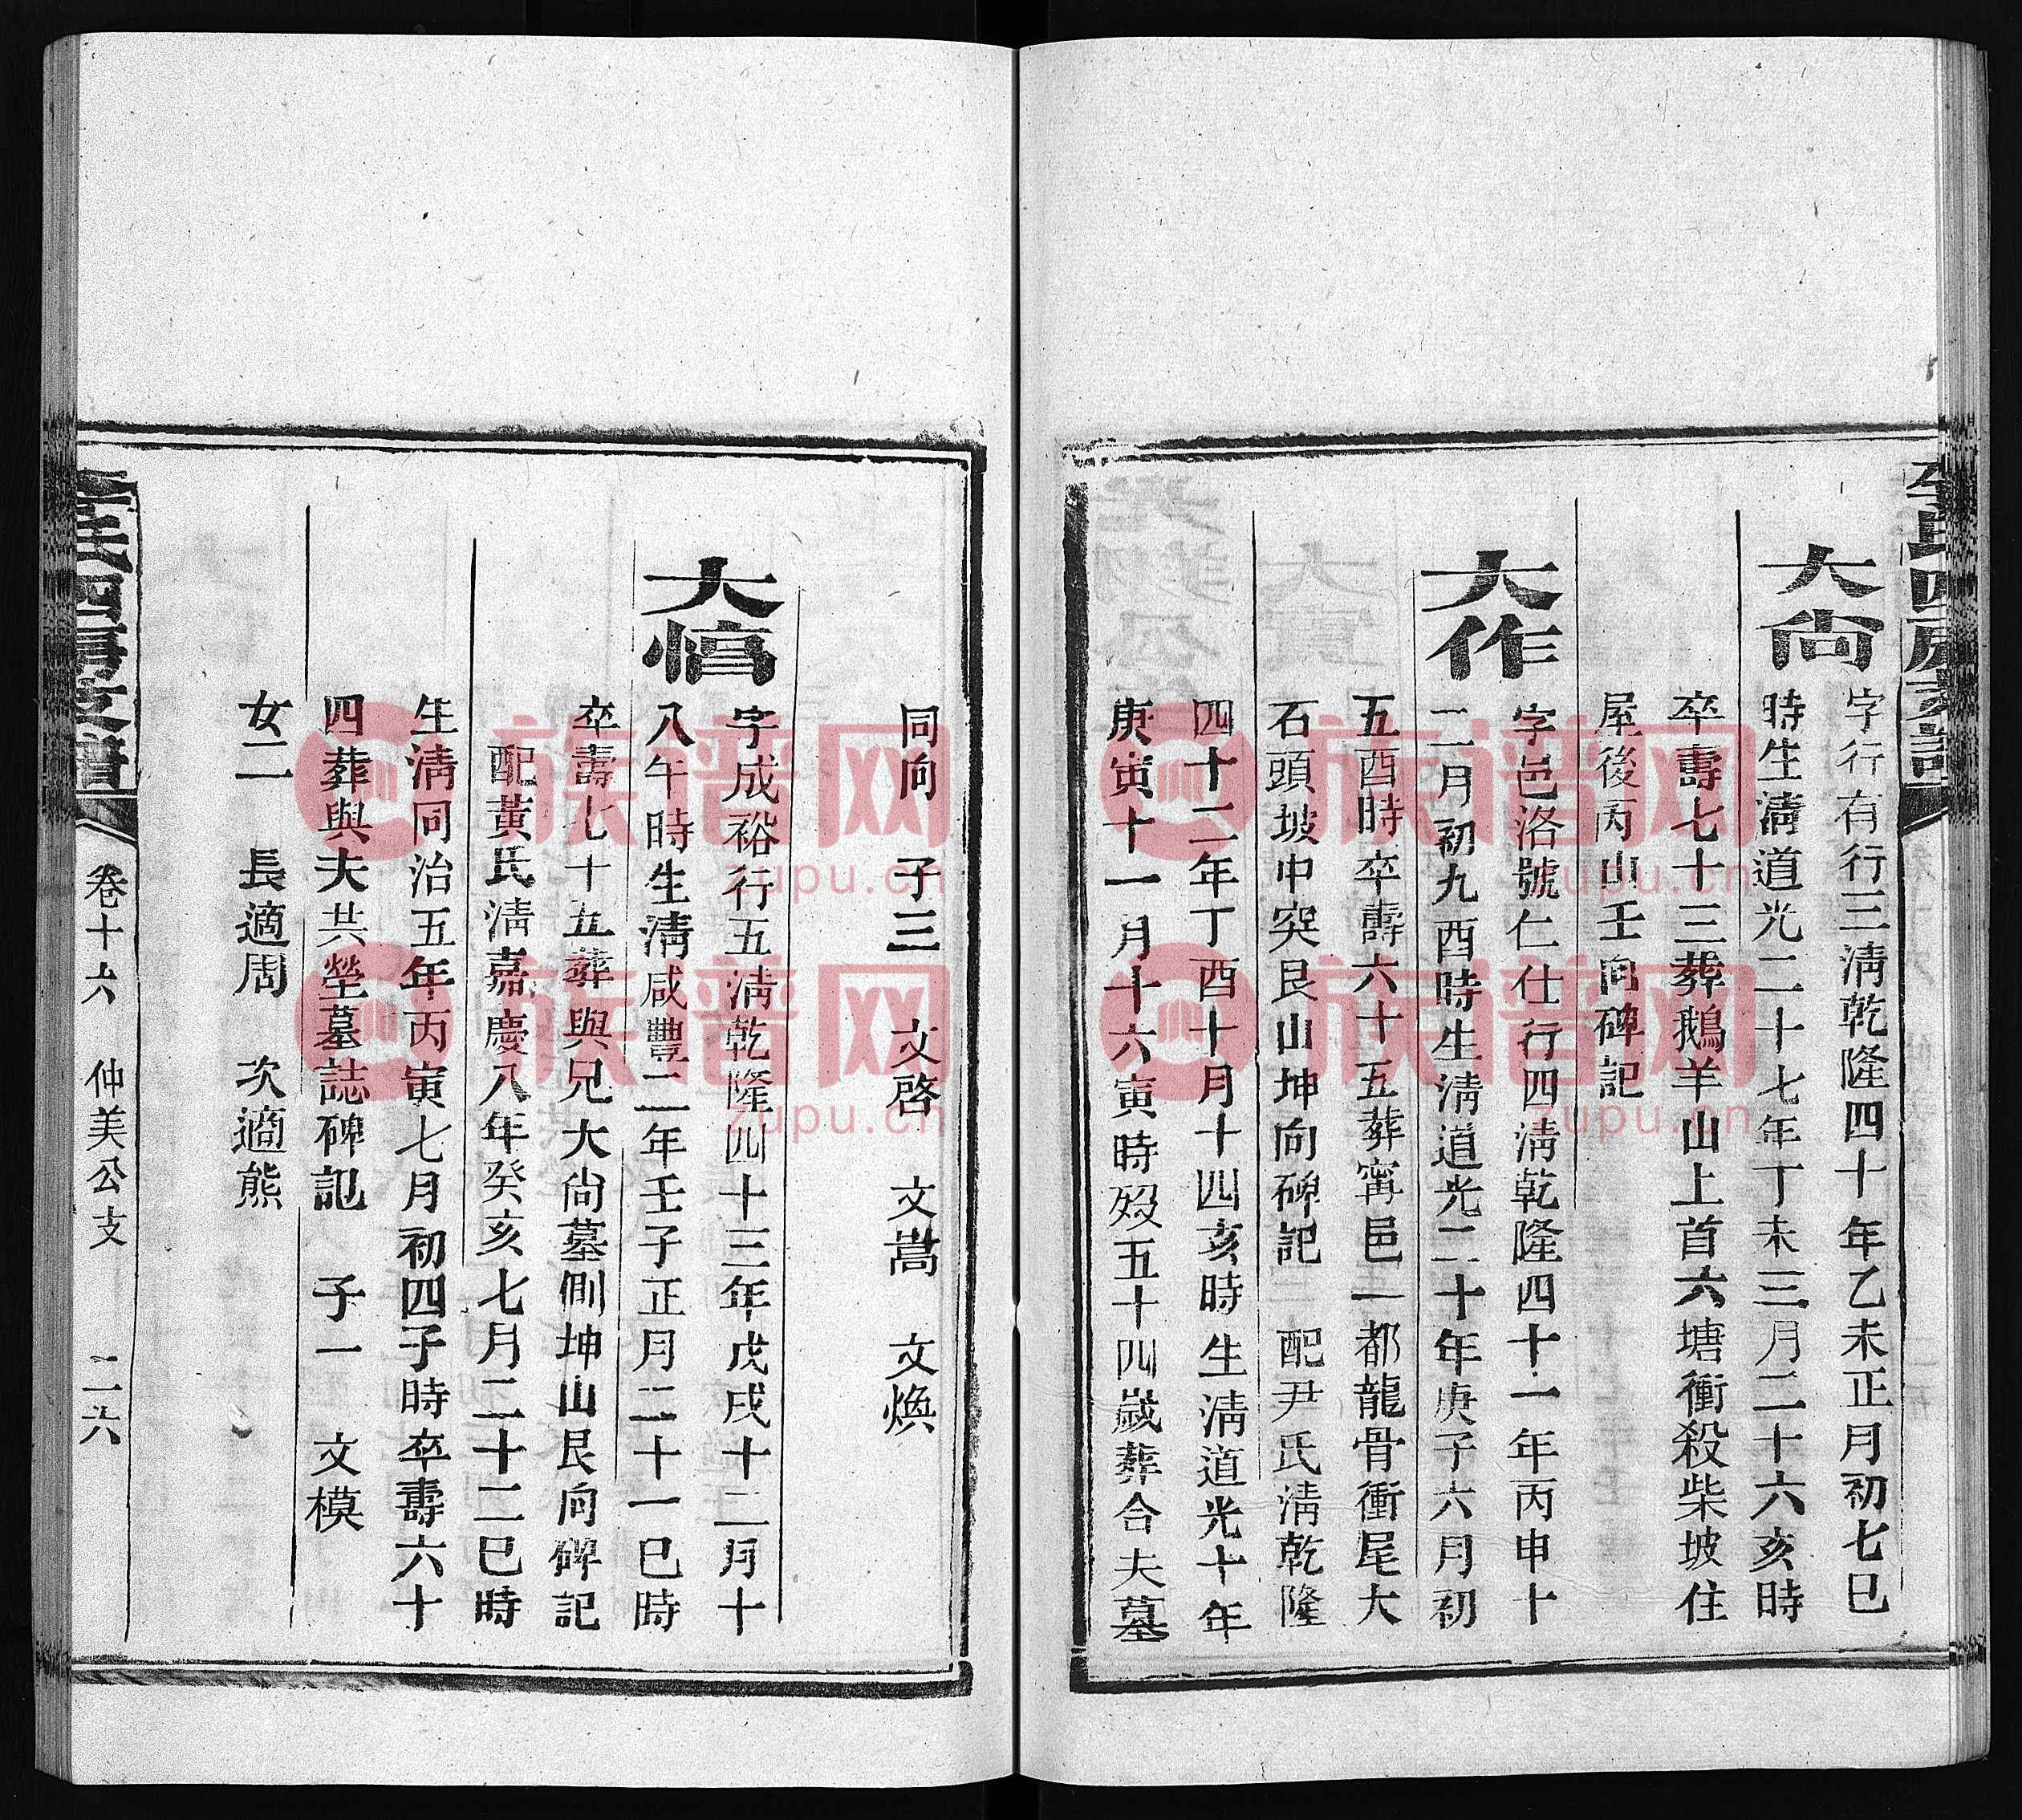 李氏四房支譜
大尙
字行有行三淸乾隆四十年乙未正月初七巳
時生淸道光二十七年丁未三月二十六亥時
卒壽七十三葬鵝羊山上首六塘衝殺柴坡住
屋後丙山壬向碑記
大作
字邑洛號仁仕行四淸乾隆四十一年丙申十
二月初九酉時生淸道光二十年庚子六月初
五酉時卒壽六十五葬甯邑一都龍骨衝尾大
石頭坡中突艮山坤向碑記 配尹氏淸乾隆
四十二年丁酉十月十四亥時生淸道光十年
庚寅十一月十六寅時歿五十四歲葬合夫墓
同向 子三 文啓 文嵩 文煥
大慎
字成裕行五淸乾隆四十三年戊戌十二月十
八午時生淸咸豐二年壬子正月二十一巳時
卒壽七十五葬與兄大尙墓側坤山艮向碑記
配黃氏淸嘉慶八年癸亥七月二十二巳時
生淸同治五年丙寅七月初四子時卒壽六十
四葬與夫共塋墓誌碑記 子一 文模
女二 長適周 次適熊
李氏四房支譜 卷十六 仲美公支 二六
族谱网
zupu.cn
族谱网
zupu.cn
族谱网
zupu.cn
族谱网
zupu.cn